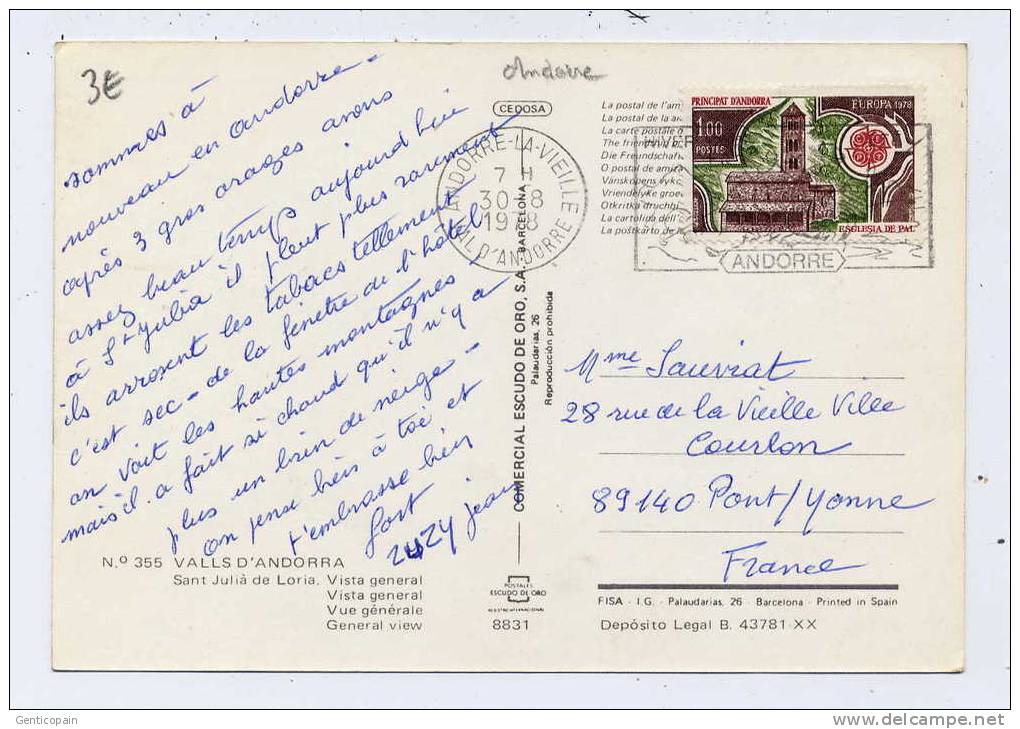 3€
Andorre
sommes à
nouveau en andorre -
après 3 gros orages avons
assez beau temps aujourd'hui
à St Julia il pleut plus rarement
ils arrosent les tabacs tellement
c'est sec - de la fenêtre de l'hôtel
on voit les hautes montagnes
mais il a fait si chaud qu'il n'y a
plus un brin de neige -
on pense bien à toi et
t'embrasse bien
fort
zuzy jean
N.º 355 VALLS D'ANDORRA
Sant Julià de Loria. Vista general
Vista general
Vue générale
General view
CEDOSA
COMERCIAL ESCUDO DE ORO, S.A. - BARCELONA
Palaudarias, 26
Reproducción prohibida
POSTALES
ESCUDO DE ORO
8831
ANDORRE-LA-VIEILLE
7 H
30-8
1978
VAL D'ANDORRE
La postal de l'am
La postal de la a
La carte postale d
The friendship p
Die Freundschaf
O postal de amiza
Vänskapens vyko
Vriendelyke groe
Otkritka druchbi
La cartolina dell'a
La postkarto de la
PRINCIPAT D'ANDORRA
EUROPA 1978
1,00
POSTES
ESGLESIA DE PAL
ANDORRE
Mme Sauvrat
28 rue de la Vieille Ville
Courlon
89140 Pont/Yonne
France
FISA - I.G. - Palaudarias, 26 - Barcelona - Printed in Spain
Depósito Legal B. 43781-XX
Genticopain
www.delcampe.net